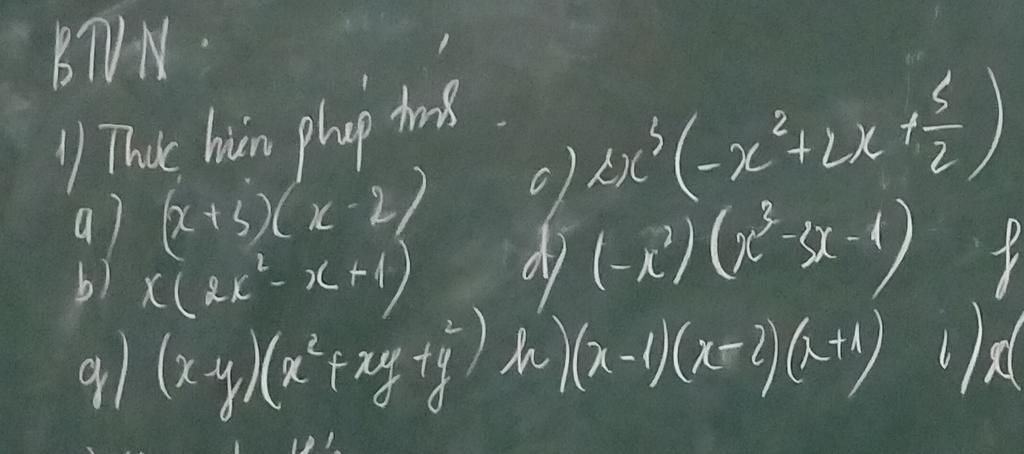 BTVN.
1) Thực hiện phép tính.
a) (x+3)(x-2) c) 2x³(-x²+2x+5/2)
b) x(2x²-x+1) d) (-x²)(x³-3x-1) f
g) (x-y)(x²+xy+y²) h)(x-1)(x-2)(x+1) i) x(